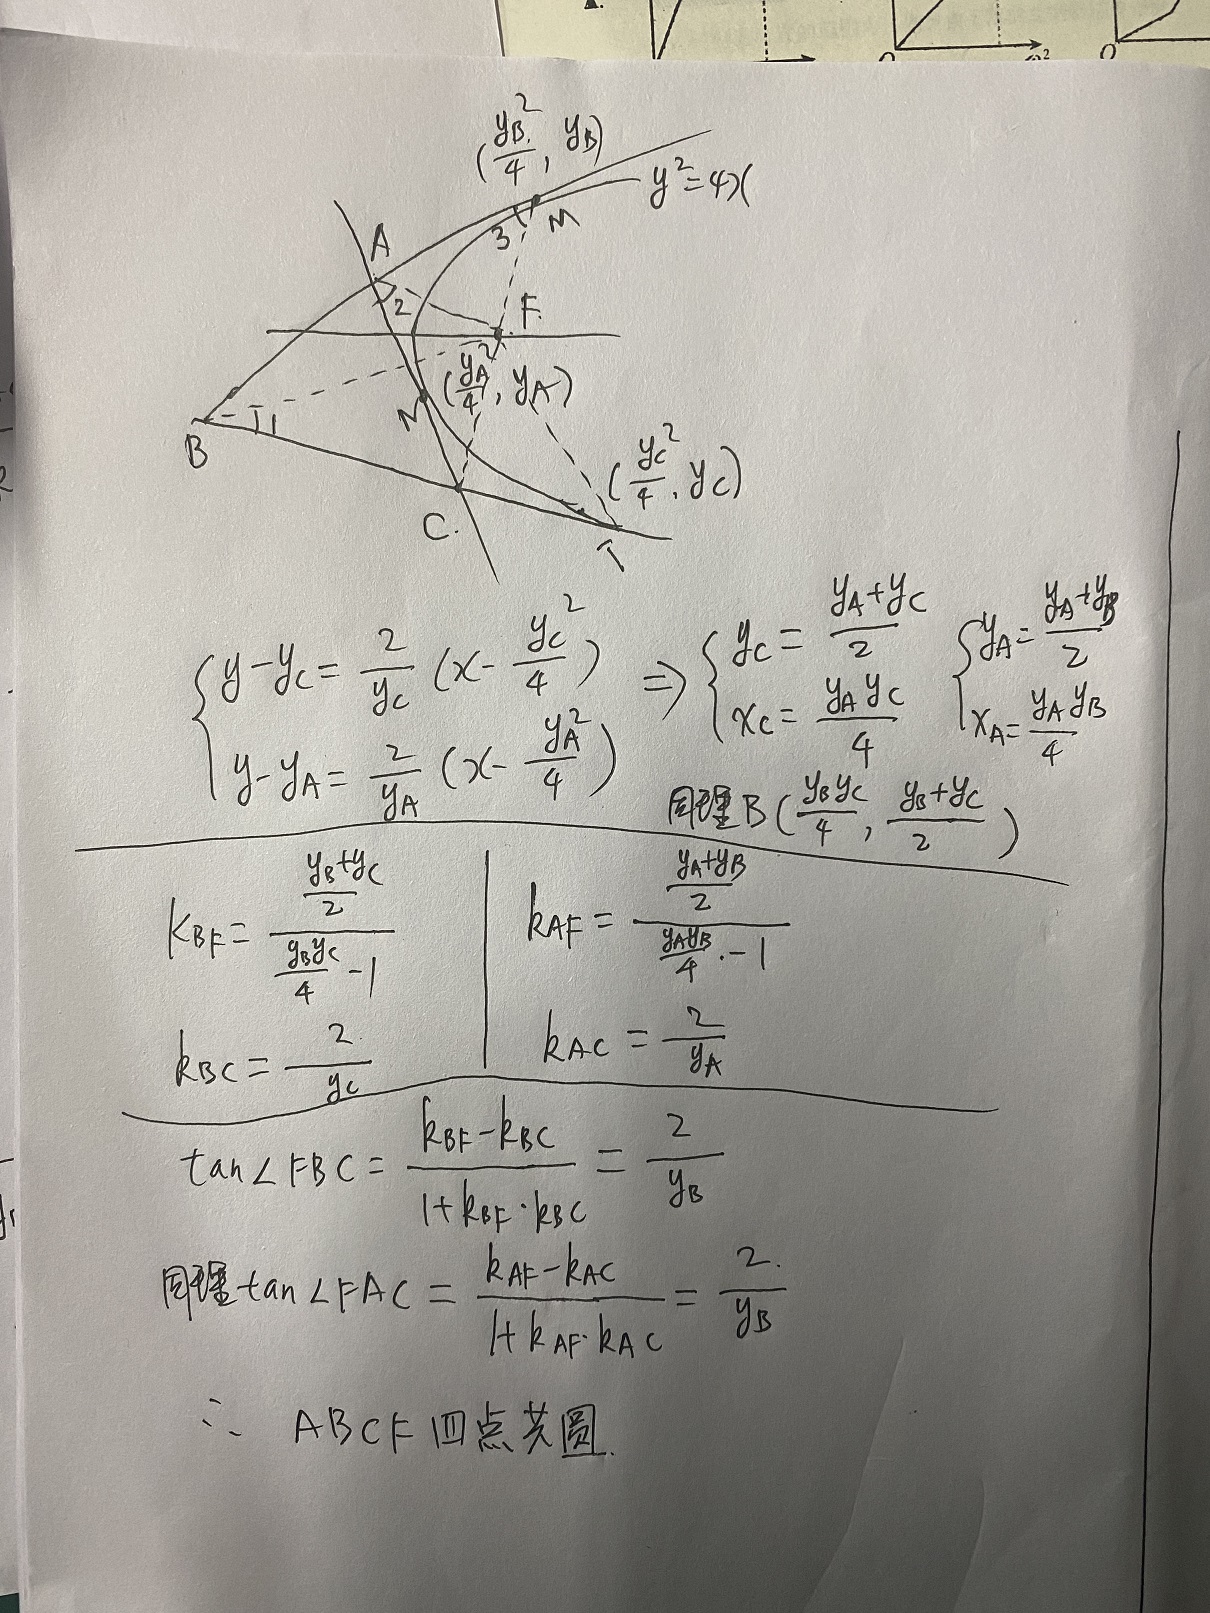 O
ω²
O
(y_B²/4, y_B)
y²=4x
A
3
M
2
F.
(y_A²/4, y_A)
N
B
1
(y_C²/4, y_C)
C.
T
{ y-y_C = 2/y_C (x - y_C²/4)
y-y_A = 2/y_A (x - y_A²/4)
⇒ { y_C = (y_A+y_C)/2
x_C = y_A y_C/4
{ y_A = (y_A+y_B)/2
x_A = y_A y_B/4
同理 B (y_B y_C/4, (y_B+y_C)/2)
K_BF = ((y_B+y_C)/2)/(y_B y_C/4 -1)
k_AF = ((y_A+y_B)/2)/(y_A y_B/4 -1)
k_BC = 2/y_C
k_AC = 2/y_A
tan∠FBC = (k_BF-k_BC)/(1+k_BF·k_BC) = 2/y_B
同理 tan∠FAC = (k_AF-k_AC)/(1+k_AF·k_AC) = 2/y_B
∴ ABCF四点共圆.